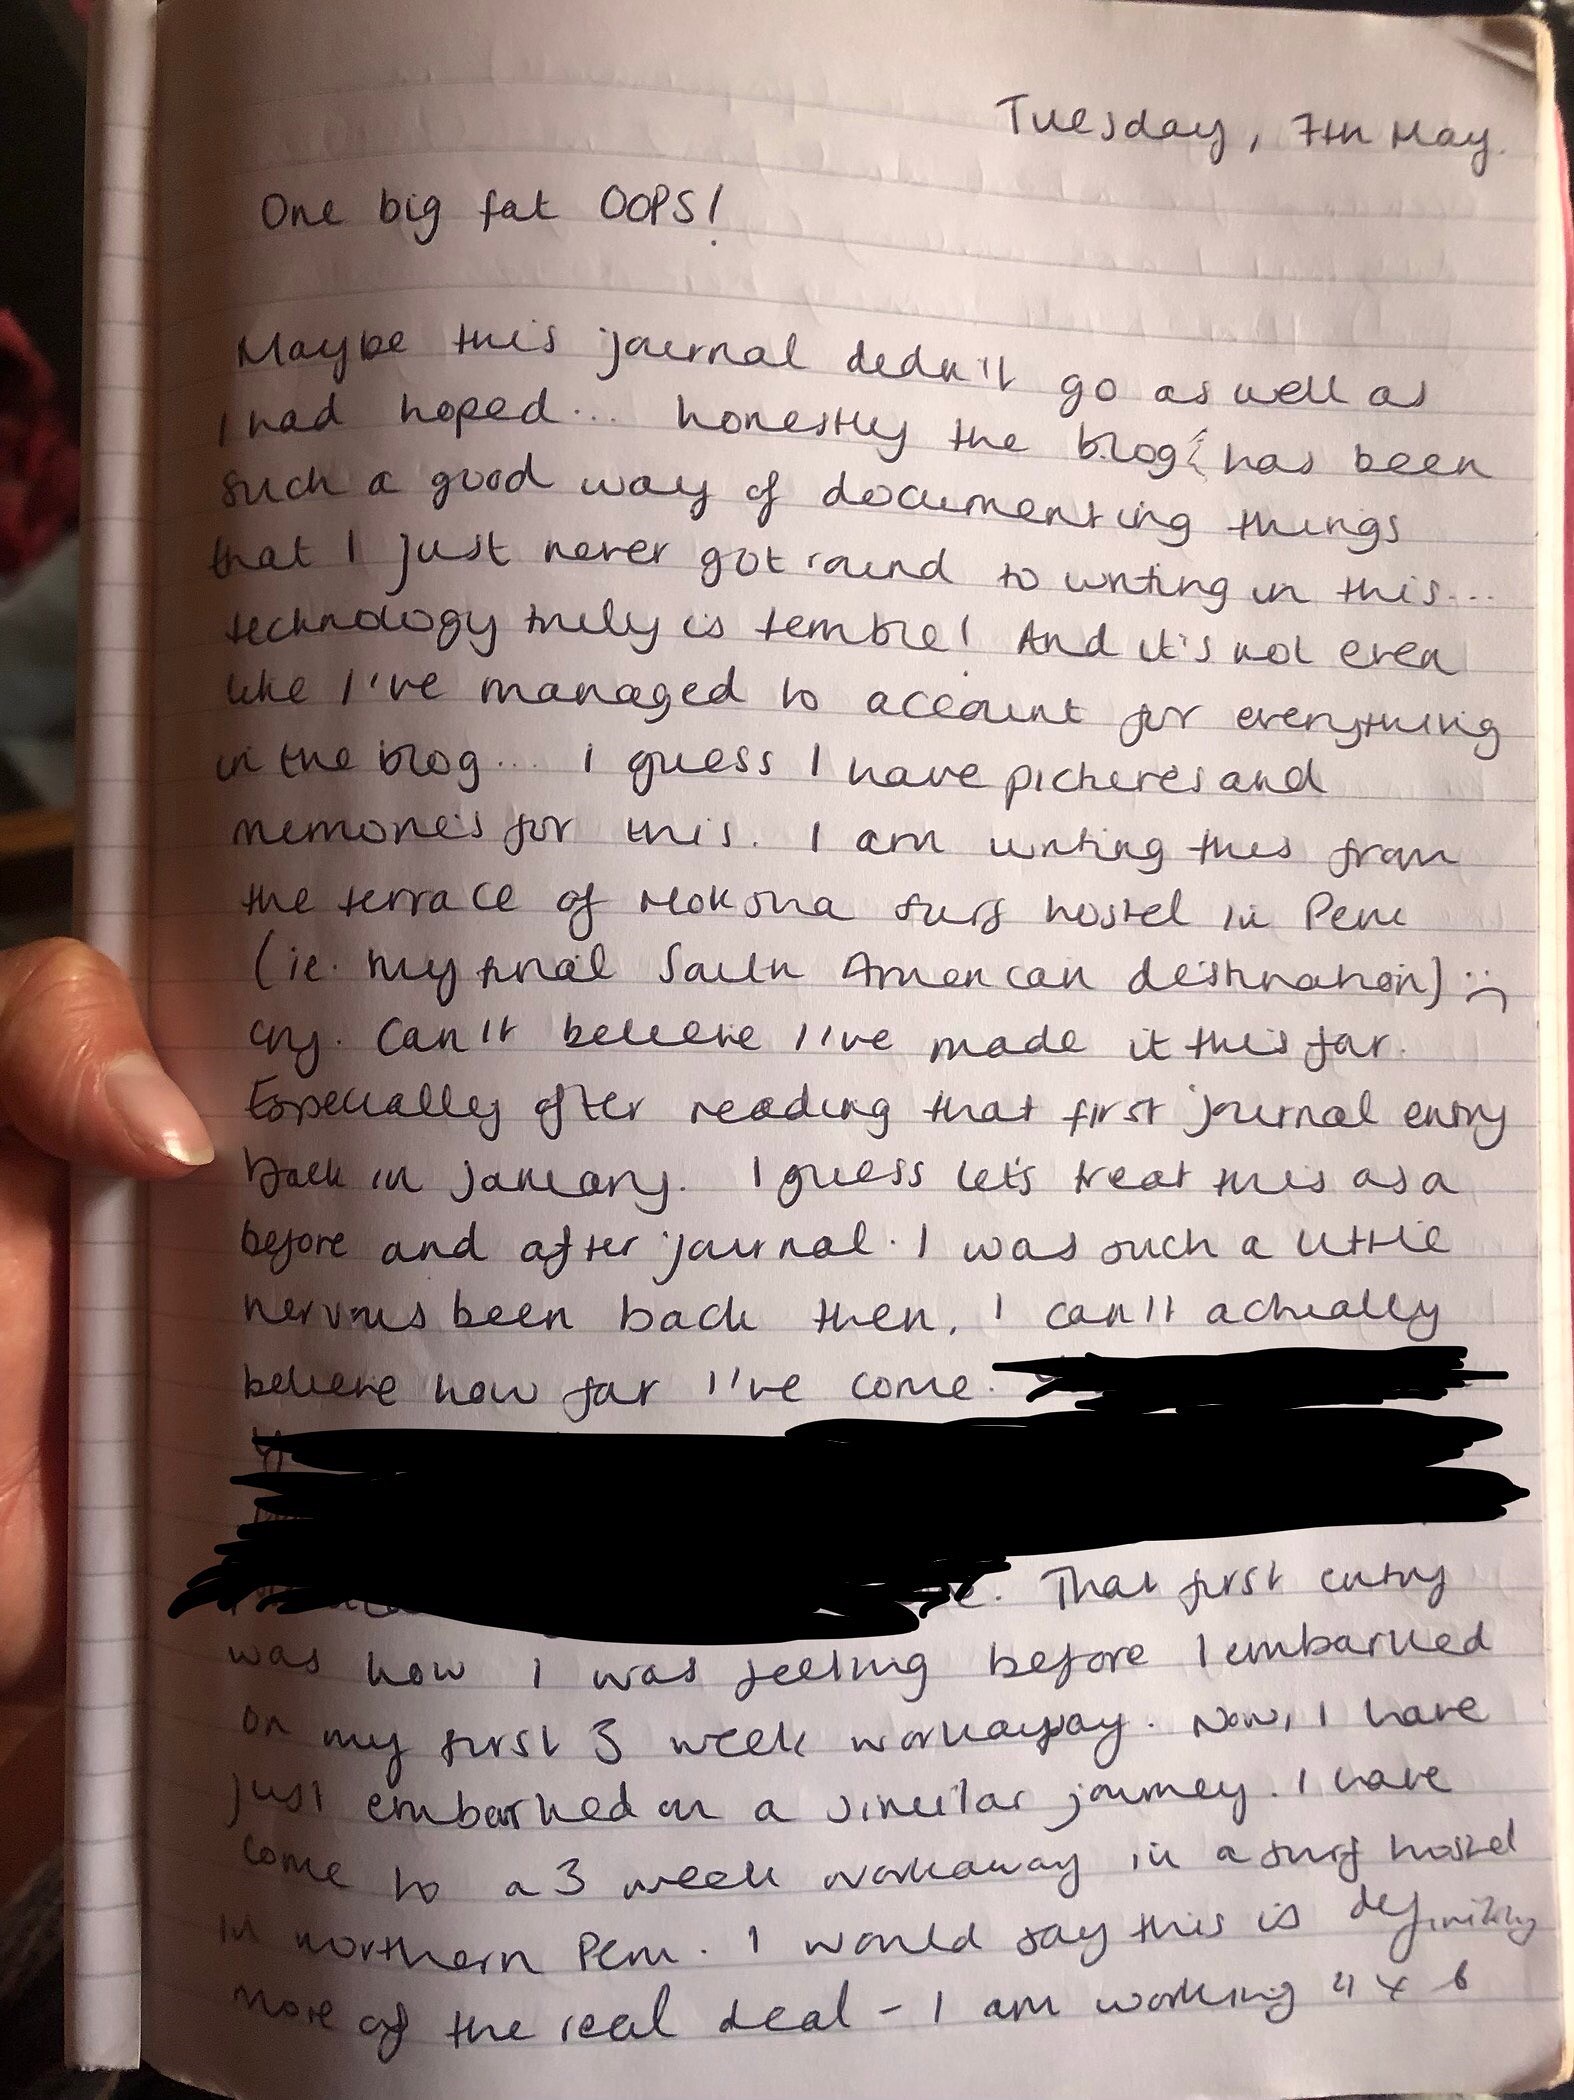 Tuesday, 7th May.
One big fat OOPS!
Maybe this journal didn't go as well as
I had hoped... honestly the blog has been
such a good way of documenting things
that I just never got 'round to writing in this...
technology truly is terrible! And it's not even
like I've managed to account for everything
in the blog... I guess I have pictures and
memories for this. I am writing this from
the terrace of Moksha surf hostel in Peru
(ie. my final South American destination) :(
cry. Can't believe I've made it this far.
Especially after reading that first journal entry
back in January. I guess let's treat this as a
before and after journal. I was such a little
nervous bean back then, I can't actually
believe how far I've come.
That first entry
was how I was feeling before I embarked
on my first 3 week workaway. Now, I have
just embarked on a similar journey. I have
come to a 3 week workaway in a surf hostel
in northern Peru. I would say this is definitely
more of the real deal - I am working 4 x 6